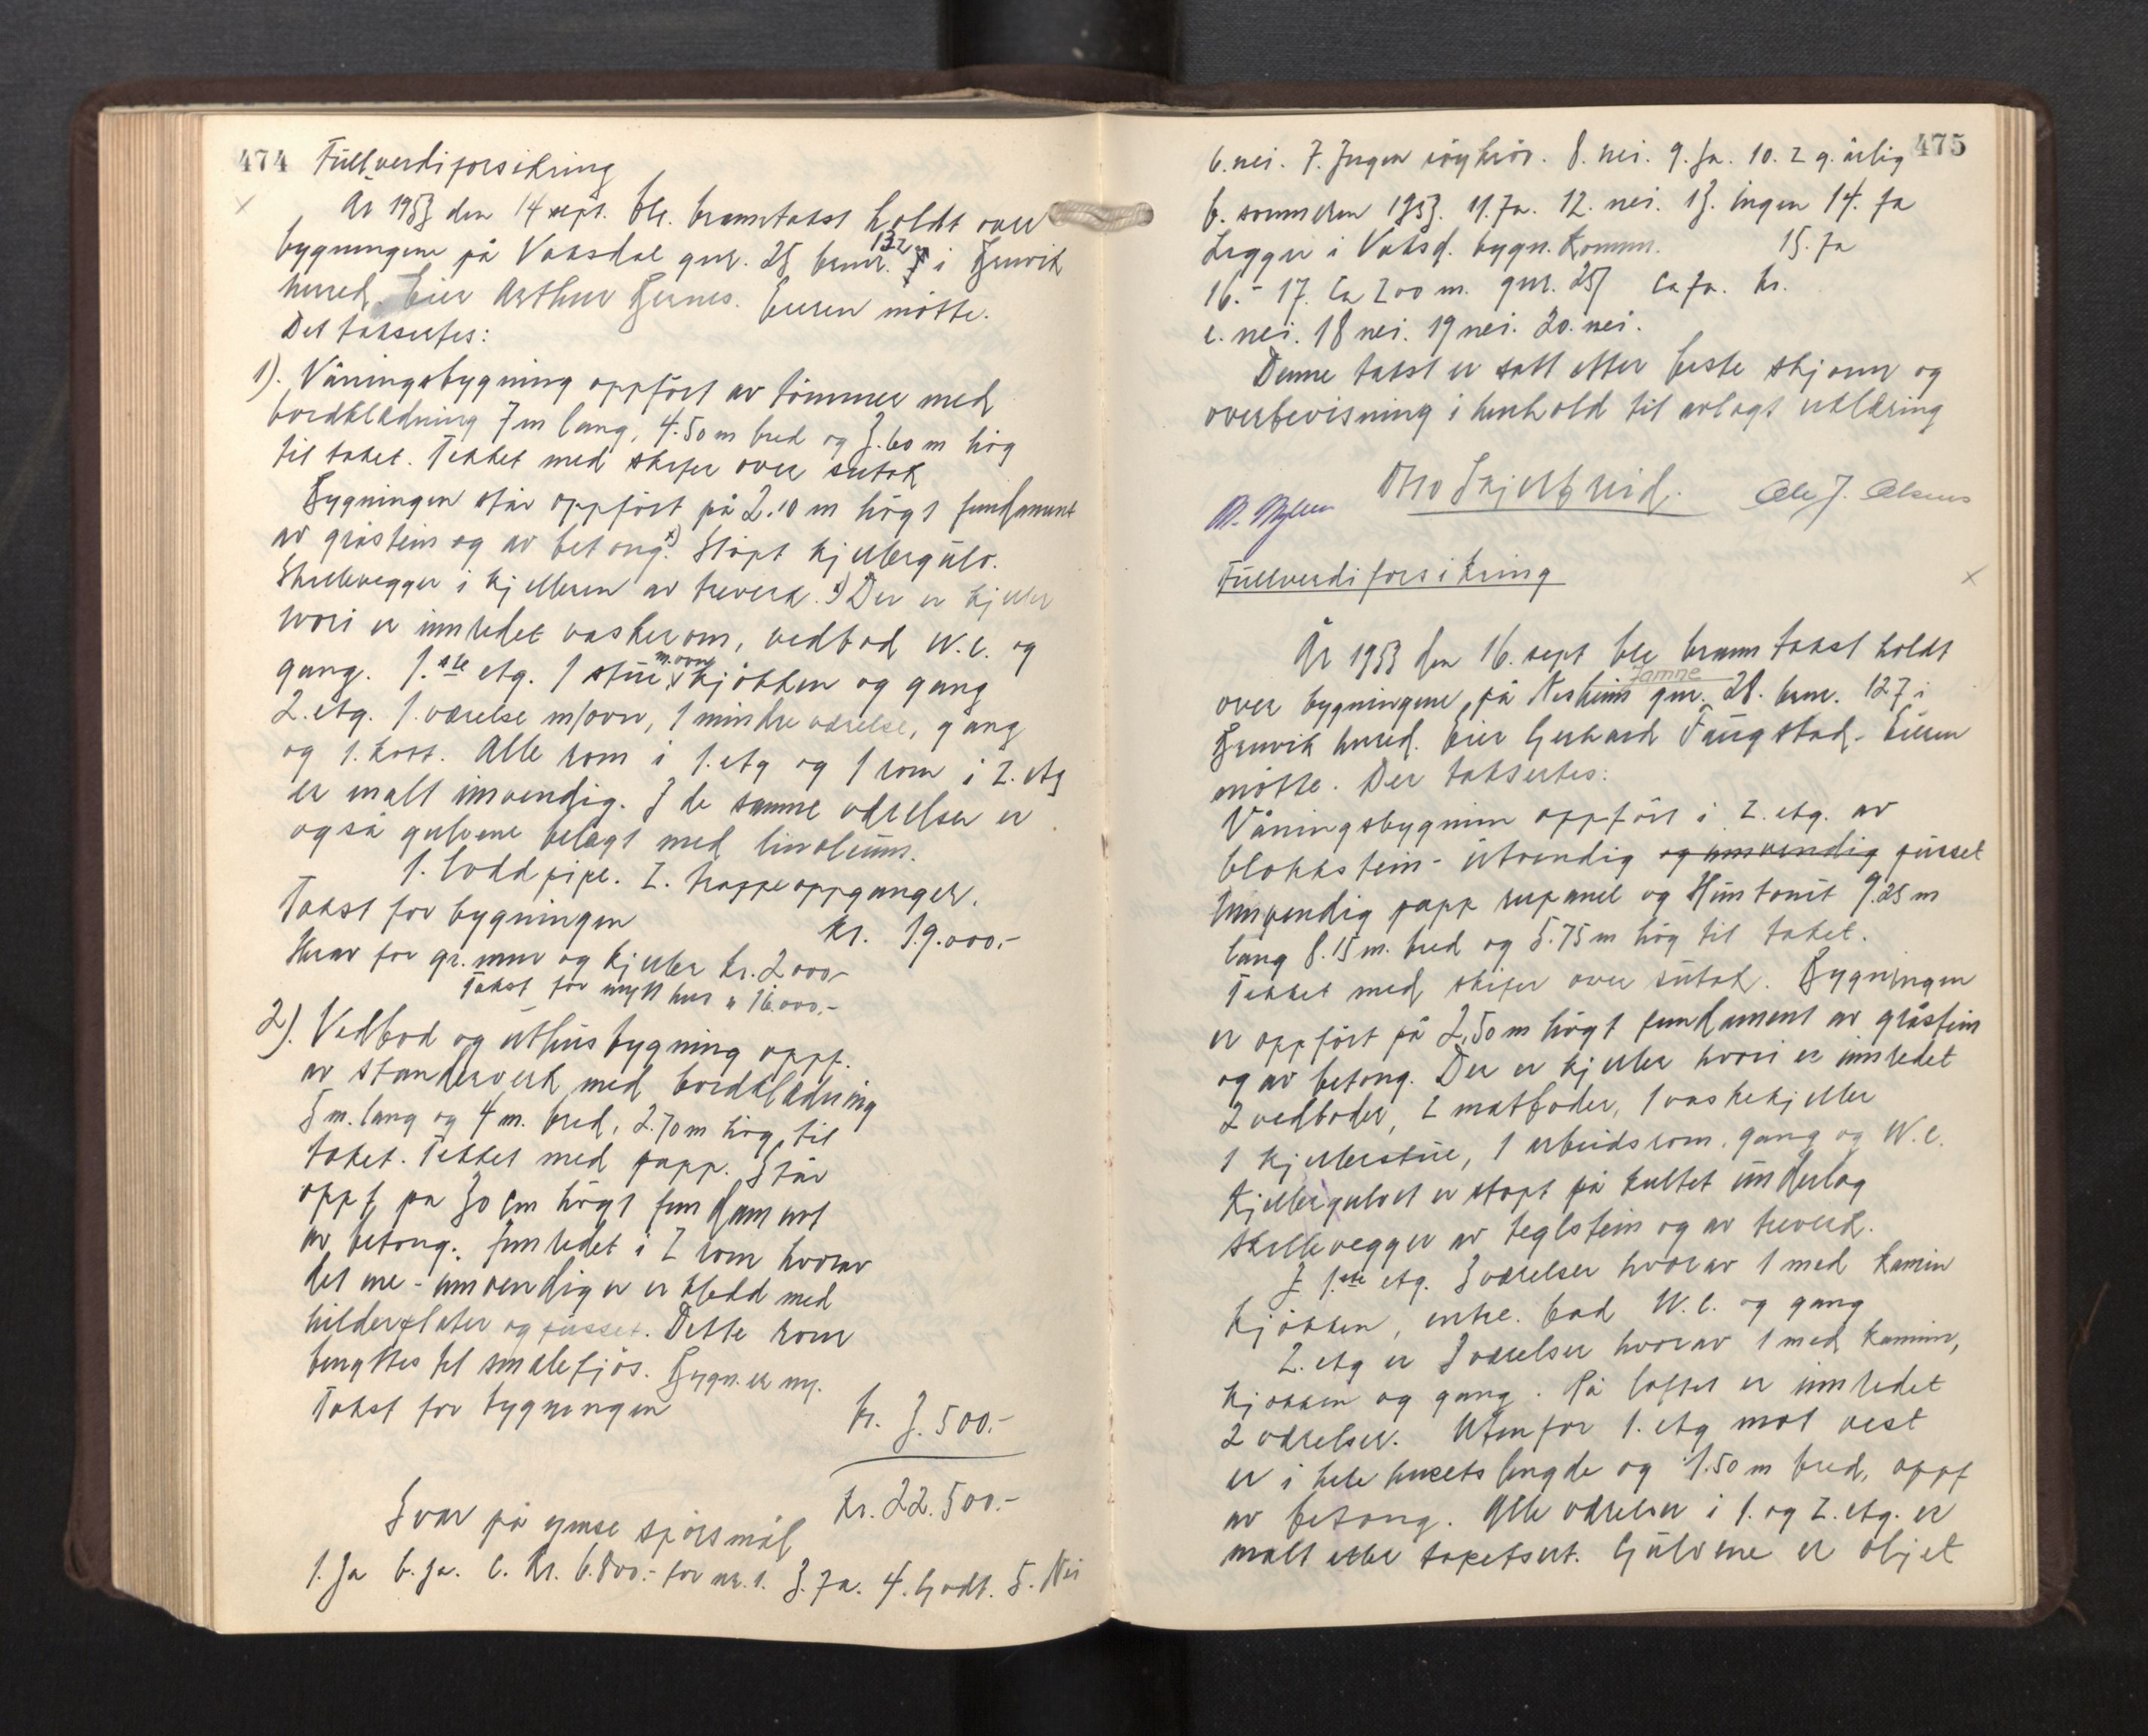 474 Fullverdiforsikring
År 1953 den 14 sept. ble. branntakst holdt over
bygningene på Vaksdal gnr. 25 bnr. 132 i Bruvik
herred. Eier Arthur Hernes. Eieren møtte.
Det taksertes:
1). Våningsbygning oppført av tømmer med
bordklædning 7 m lang, 4.50 m bred og 3.60 m høg
til taket. Tekket med skifer over sutak
Bygningen står oppført på 2.10 m høgt fundament
av gråstein og av betong. x) Støpt kjellergulv.
Skillevegger i kjelleren av treverk. x) Der er kjeller
hvori er innredet vaskerom, vedbod W.C. og
gang. 1.ste etg. 1 stue m. ovn, kjøkken og gang
2. etg. 1. værelse m/ovn, 1 mindre værelse, gang
og 1. kott. Alle rom i 1. etg og 1 rom i 2. etg
er malt innvendig. I de samme værelser er
også gulvene belagt med linoleum.
1. loddpipe. 2. trappeoppganger.
Takst for bygningen
kr. 19.000.-
Herav for gr. mur og kjeller kr. 2000.-
Takst for nytt hus " 16.000.-
2). Vedbod og uthusbygning oppf.
av standerverk med bordklædning
5 m. lang og 4 m. bred, 2.70 m høg, til
taket. Tekket med papp. Står
oppf på 30 cm høgt fundament
av betong. Innredet i 2 rom hvorav
det ene - innvendig er kledd med
hilderplater og pusset. Dette rom
benyttes til småfefjøs. Bygn. er ny.
Takst for bygningen
kr. 3.500.-
kr. 22.500.-
Svar på ymse spørsmål
1. Ja b. Ja. c. Kr. 6.800.- for nr. 1. 3. Ja. 4. Godt. 5. Nei
475
6. nei. 7. Ingen røykrør. 8. nei. 9. Ja. 10. 2 g. årlig
b. sommeren 1953. 11. Ja. 12. nei. 13. ingen 14. Ja
Ligger i Vaksd. bygn. komm. 15. Ja
16. - 17. Ca 200 m. gnr. 25/ Ca Ja. kr.
c. nei. 18 nei. 19 nei. 20. nei.
Denne takst er satt etter beste skjønn og
overbevisning i henhold til avlagt erklæring
Otto Skjerfveid. Ole J. Olsnes
Fullverdiforsikring
År 1953 den 16. sept ble branntakst holdt
over bygningene på Nesheim Jamne gnr. 28. bnr. 127 i
Bruvik herred. Eier Gerhard Faugstad. Eieren
møtte. Der taksertes:
Våningsbygnin oppført i 2. etg. av
blokkstein - utvendig og innvendig pusset
Innvendig papp rupanel og Huntonit 9.25 m
lang 8.15 m. bred og 5.75 m høg til taket.
Tekket med skifer over sutak. Bygningen
er oppført på 2,50 m høgt fundament av gråstein
og av betong. Der er kjeller hvori er innredet
2 vedboder, 2 matboder, 1 vaskekjeller
1 kjellerstue, 1 arbeidsrom. gang og W.C.
Kjellergulvet er støpt på kultet underlag
Skillevegger av teglstein og av treverk.
I 1.ste etg. 3 værelser hvorav 1 med kamin
kjøkken, entre. bad W.C. og gang
2. etg er 3 værelser hvorav 1 med kamin,
kjøkken og gang. På loftet er innredet
2 værelser. Utenfor 1. etg mot vest
er i hele husets lengde og 1.50 m bred, oppf
av betong. Alle værelser i 1. og 2. etg. er
malt eller tapetsert. Gulvene er oljet